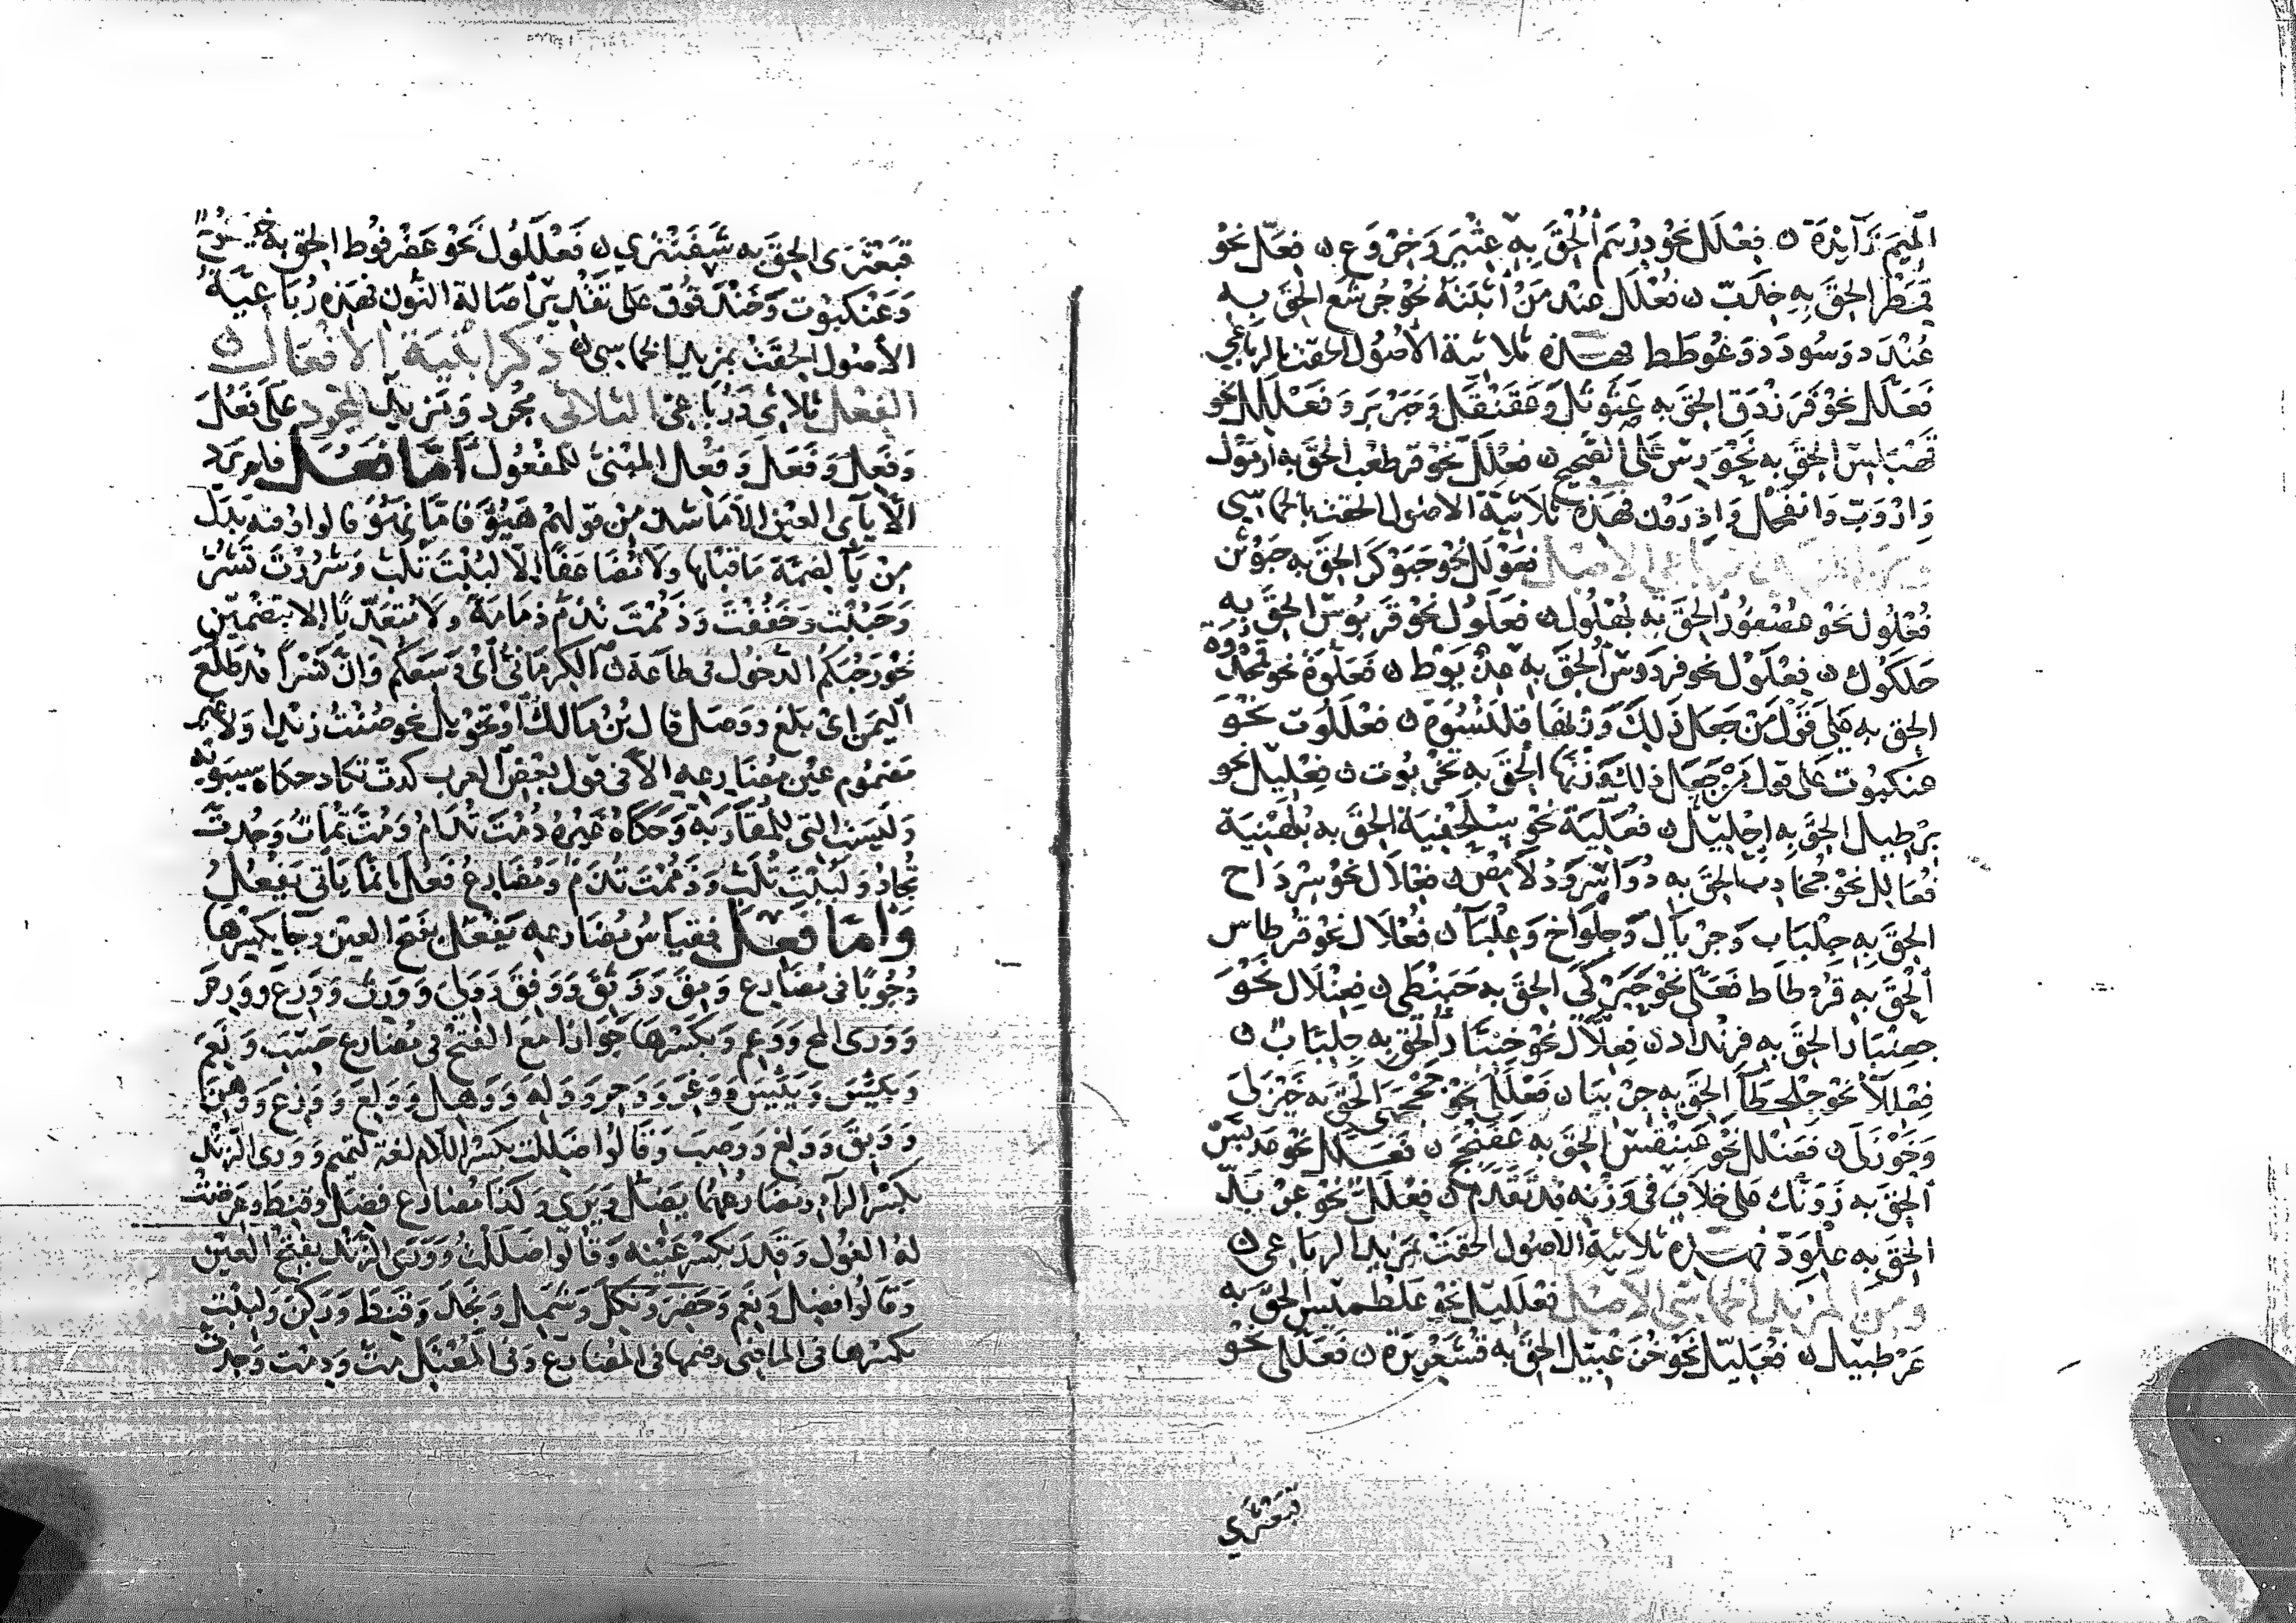 الميم زَآيدة ن فِعْلَل نحو دِرْهَم أُلْحِقَ بِهِ عِثْيَر وَخِرْوَع ن فِعَلّ نحو
قِمَطْر الحِقَ بِهِ خِدَبّ ن فُعْلَل عند مَنْ أثبتَهُ نحو جُرْشَع الحِقَ بِهِ
عُنْدَد وَسُودَد وَعُوطَط فهذه ثلاثية الأصُول الحقت بالرباعي
فَعَلَّل نحو فَرَزْدَق الحِقَ به عَثَوْثَل وَعَقَنْقَل وَحَبَرْبَر وَفَعْلَلِل نحو
الحِقَ به على الصحيح ن فِعْلَلّ نحو قرطعب الحق به ازمَوْل
وَارْدَبّ وَانْقَحْل وَاِدْرَوْن فهَذِهِ ثلاثِيّة الاصُول الحقت بالخماسي
الأصل فَعَوْلَل نحو حَبَوْكَر الحِق به
فُعْلُول نحو عُصْفُور الحِقَ بِه بُهْلُول ن فَعَلُول نحو قَرَبُوس الحِقَ به
حَلَكُوك ن فِعْلَوْل نحو فردَوْس الحِقَ بِهِ عِذْيَوْط ن فَعَلُّوَة نحو قَمَحْدُوَة
الحِق به على قَوْل مَنْ جَعَل ذَلِكَ وَزْنَهَا قَلَنْسُوَة ن فَعْلَلُوت نحو
عنكبُوت على قول مَنْ جَعَل ذلك وَزْنَهَا الحِقَ بِه نَخْرَبُوت ن فِعْلِيل نحو
بِرْطِيل الحِقَ بِهِ اِحْلِيل ن فُعَلِّيَة نحو سُلَحْفِيَة الحِقَ به بُلَهْنِيَة
فُعَالِل نحو جُخَادِب الحِقَ بِه دُوَاسِر وَدُلَامِص ن فِعْلَال نحو سِرْدَاح
الحِقَ بِهِ جِلْبَاب وَجِرْيَال وَجِلْوَاخ وَعِلْبَاء ن فُعْلَال نحو قُرْطاس
الحِقَ بِهِ قُرْطَاط فَعَلَّى نحو حَبَرْكَى الحِقَ بِه حَبَنْطَى ن فِعِنْلَال نحو
جِعِنْبَار الحِقَ بِه فرنْدَاد ن فِعِلَّال نحو الحِق بِه جِلِبَّاب ن
فِعْلِلَاء نحو جِلْحِطَاء الحِقَ بِه جِرْبِيَاء ن فَعْلَلَى نحو جَحْجَبَى الحِقَ به خَيْزَلَى
وَخَوْزَلَى ن فَعَنْلَل نحو عَبَنْقَس الحِقَ بِه عَفَنْجَج ن فَعَلَّل نحو عَدَبَّس
الحِقَ بِه زَوَنَّك على خلاف في وَزْنِه قد تَقَدّم ن فِعْلَلّ نحو عِرْبَدّ
الحِقَ به عِلْوَدّ فهذه ثلاثية الاصُول الحقت بمزيد الرباعي ن
ومن المزيد الخماسي الأصل فَعْلَلِيل نحو عَلْطَمِيس الحِقَ به
عَرْطَبِيل ن فُعَلِّيل نحو خُزَعْبِيل الحِقَ بِه قُشَعْرِيرَة ن فَعَلَّلَى نحو
قَبَعْثَرَى
قَبَعْثَرَى الحِقَ به شَفَنْتَرَى ن فَعْلَلُول نحو عَضْرَفُوط الحِقَ به
وَعَنْكَبُوت وَخَنْدَقُوق عَلى تقْدِير أصَالة النّون فهذه رُبَاعِيّةُ
الأصُول الحِقَتْ بمزيد الخماسي ن ذكر ابنية الأفعال ن
الفعل ثلاثى وَرُبَاعى الثلاثى مجرد وَمَزيد المجرد على فَعُلَ
وَفَعِلَ وَفَعَلَ وَفُعِلَ المبْنى للمَفعُول أمّا فَعُلَ فلم يرد
الّا يآئى العين إلّا مَا شذّ من قولهم هَيُؤَ فَامّا نَهُوَ فالواو فيه بَدَلٌ
مِنْ يَآءٍ لضمّة مَا قبلهَا وَلَا مُضَاعَفًا إلّا لَبُبْتَ تَلُبُّ وَشَرُرْتَ تَشُرُّ
وَحَبُبْتَ وَخَفُفْتَ وَذَمُمْتَ تَذُمّ ذمَامَة وَلَا مُتَعَدِّيًا إلا بتَضْمِين
نحو رَحُبَكم الدخُول في طاعة أى وَسِعَكم وَانّ بُسْرًا قد طَلُعَ
اليَمَن اى بَلغ وَوَصَل قال بْنُ مَالك اوْ تحويل نحو صُنْتُ زيدا وَلَا غير
مَضمُوم عين مضارعِهِ الّا في قول بَعْض العرب كُدتَ تكاد حكاه سيبَوَيْه
وَليسَت التي للمقاربة وَحَكَاهُ غيرُهُ دُمْتَ تَدَامُ وَمُتَّ تَمَاتُ وَجُدتَ
تُجَادُ وَلَبُبْتَ تَلَبّ وَذَمُمْتَ تَذَمّ وَمُضَارِعُ فَعُلَ انّمَا يَأتى يَفْعُلُ
وَامّا فَعِلَ فَقِيَاسُ مُضَارعِهِ يَفْعَلُ بفَتح العين وجآ بكسْرهَا
وُجُوبًا فى مُضَارع وَمِقَ وَوَثِقَ وَوَفِقَ وَوَلِيَ وَوَرِثَ وَوَرِعَ وَوَرِمَ
وَوَرِىَ المخ وَوَعِمَ وَبكَسْرهَا جَوَازًا مَعَ الفتح في مُضارع حَسِبَ وَنَعِمَ
وَيَئِسَ وَيَبِسَ وَوَغِرَ وَوَحِرَ وَوَلِهَ وَوَهِلَ وَوَلِعَ وَوَزِعَ وَوَهِنَ
وَوَبِقَ وَوَلِغَ وَوَصِبَ وَقَالُوا ضَلِلْت بكَسْر اللّام لغة لتميم وَوَرِىَ الزند
بكَسْر الرّآء وَمُضَارعُهما يَضِلّ وَيَرِى وَكذا مُضَارع فَضِلَ وَقنِطَ وعَرِضَتْ
لهُ الغول وَقَد تكسَر عَيْنه وَقَالوا ضَلَلْت وَوَرَى الزّند بفَتح العين
وَقَالُوا فَضِلَ وَنَعِمَ وَحَضِرَ وَنَكِلَ وَشَمِلَ وَنَجِدَ وَقَنِطَ وَرَكِنَ وَلَبِبْتَ
بكَسْرهَا في الماضي وَضمهَا فى المُضَارع وَفي المُعْتَلّ مِتّ وَدِمْت وَجِدتَ